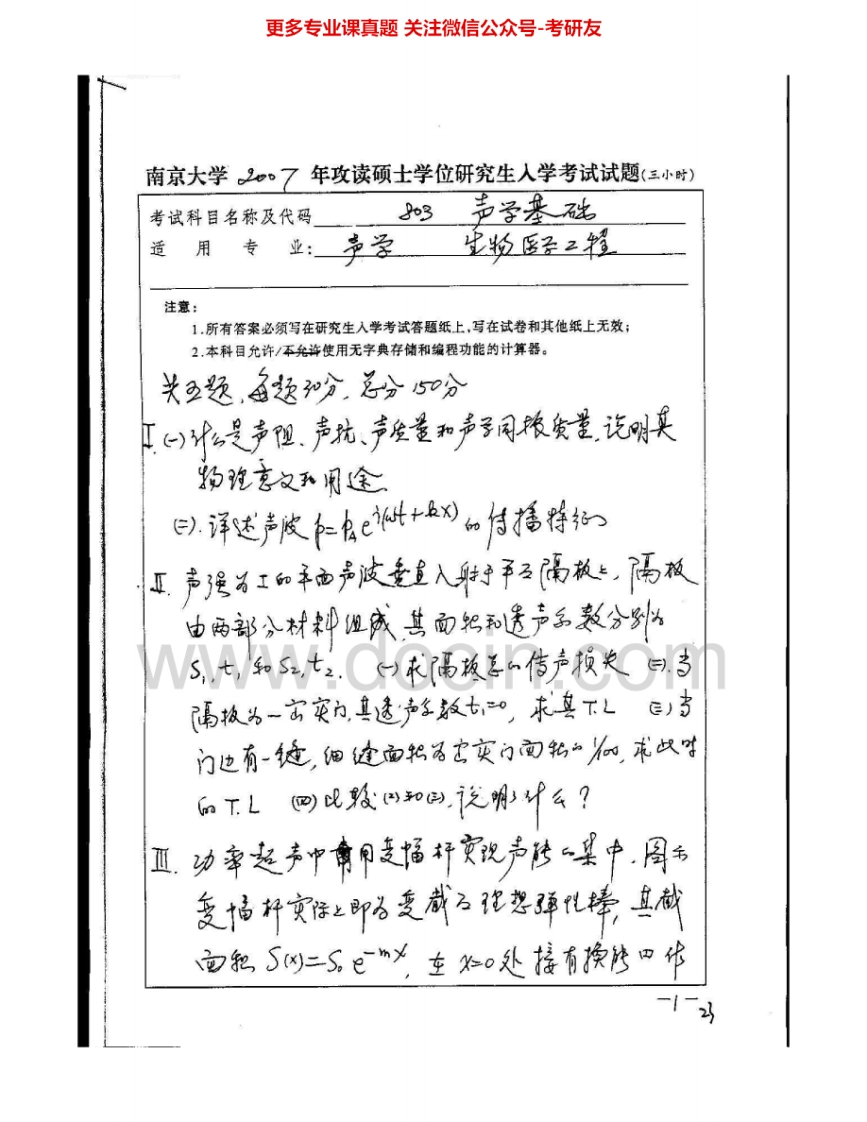 更多专业课真题 关注微信公众号-考研友
南京大学 2007 年攻读硕士学位研究生入学考试试题(三小时)
考试科目名称及代码 803 声学基础
适用专业: 声学 生物医学工程
注意:
1.所有答案必须写在研究生入学考试答题纸上,写在试卷和其他纸上无效;
2.本科目允许/不允许使用无字典存储和编程功能的计算器。
共五题,每题30分,总分150分
I.(一)什么是声阻、声抗、声质量和声学同振质量,说明其
物理意义和用途
(二).详述声波 p=pAe^j(ωt+kx) 的传播特征
II. 声强为I的平面声波垂直入射于平面隔板上,隔板
由两部分材料组成,其面积和透声系数分别为
S1,t1和S2,t2. (一)求隔板总的传声损失 (二)当
隔板为一密实门,其透声系数t1=0,求其T.L (三)当
门边有一缝,细缝面积为密实门面积的1/100,求此时
的T.L (四)比较(二)和(三),说明了什么?
www.docin.com
III. 功率超声中常用变幅杆实现声能的集中,图示
变幅杆实际上即为变截面理想弹性棒,其截
面积 S(x)=S0e^-mx,在x=0处接有换能四作
-1-
23